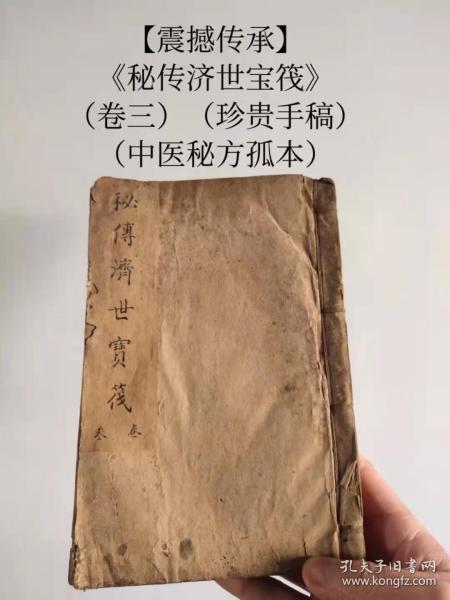 【震撼传承】
《秘传济世宝筏》
（卷三）（珍贵手稿）
（中医秘方孤本）
秘傳濟世寶筏
卷叁
孔夫子旧书网
www.kongfz.com